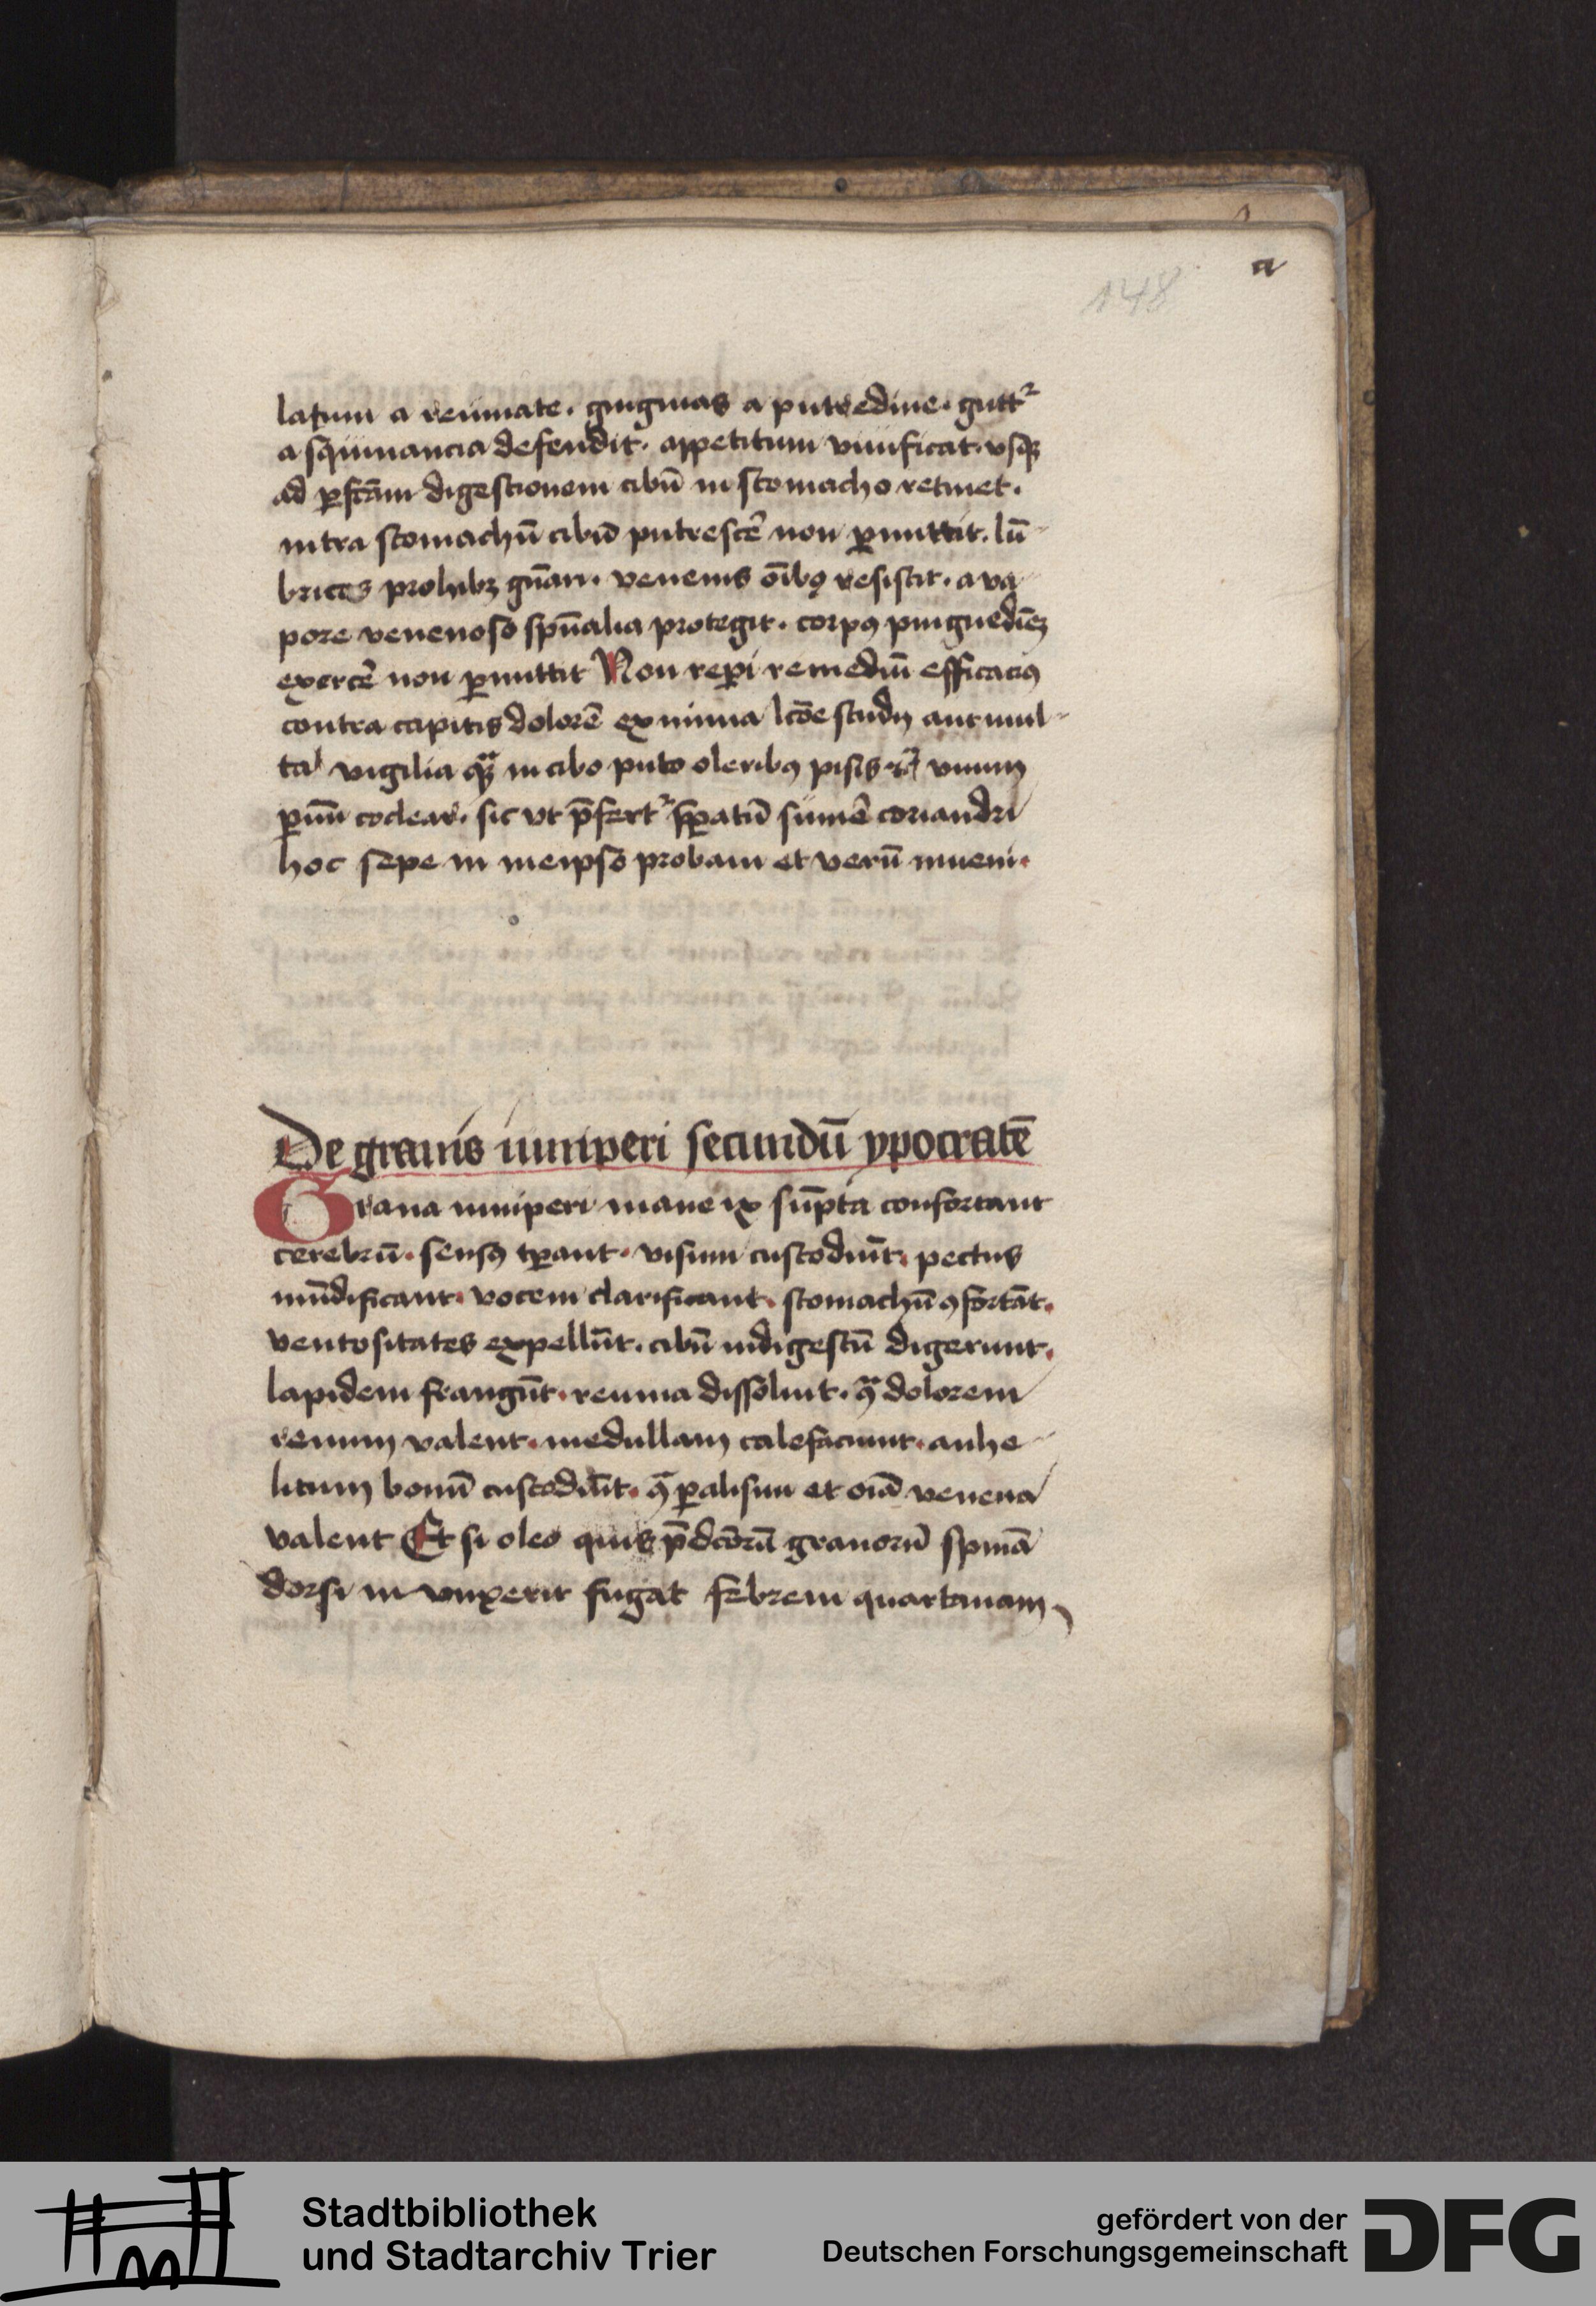 a
148
latum a reumate. gingiuas a putredine. guttᷣ
a squinancia defendit. appetitum viuificat. vsqꝫ
ad ꝑfc̄am digestionem cibū in stomacho retinet.
intra stomachū cibū putresce᷑ non ꝑmittit. lū-
brices prohibꝫ gn̄ari. venenis oībꝯ resistit. a va-
pore venenoso spūalia protegit. corpꝯ pinguedīeꝫ
exerce᷑ non ꝑmittit Non reꝑi remediū efficaciꝯ
contra capitis dolorē ex nimia lc̄ōe studij aut mul-
ta vigilia in cibo puto oleribꝯ pisis vnum
ꝑuū coclear. sic vt p̄fertᷣ p̄ꝑatū sume᷑ coriandri
hoc sepe in meipso probaui et verū inueni.
De granis iuniperi secundū ypocratē
Grana iuniperi mane ix sūpta confortant
cerebrū. sensꝯ tꝑant. visum custodiūt. pectus
mūdificant. vocem clarificant. stomachū ꝯfortāt.
ventositates expellūt. cibū indigestū digerunt.
lapidem frangūt. reuma dissoluūt. ꝯᷓ dolorem
renum valent. medullam calefaciunt. anhe-
litum bonū custodiūt. ꝯᷓ ꝑalisim et oīa venena
valent Et si oleo quis p̄dc̄orū granorū spinā
dorsi in vnxerit fugat febrem quartanam
Stadtbibliothek
und Stadtarchiv Trier
gefördert von der
Deutschen Forschungsgemeinschaft
DFG